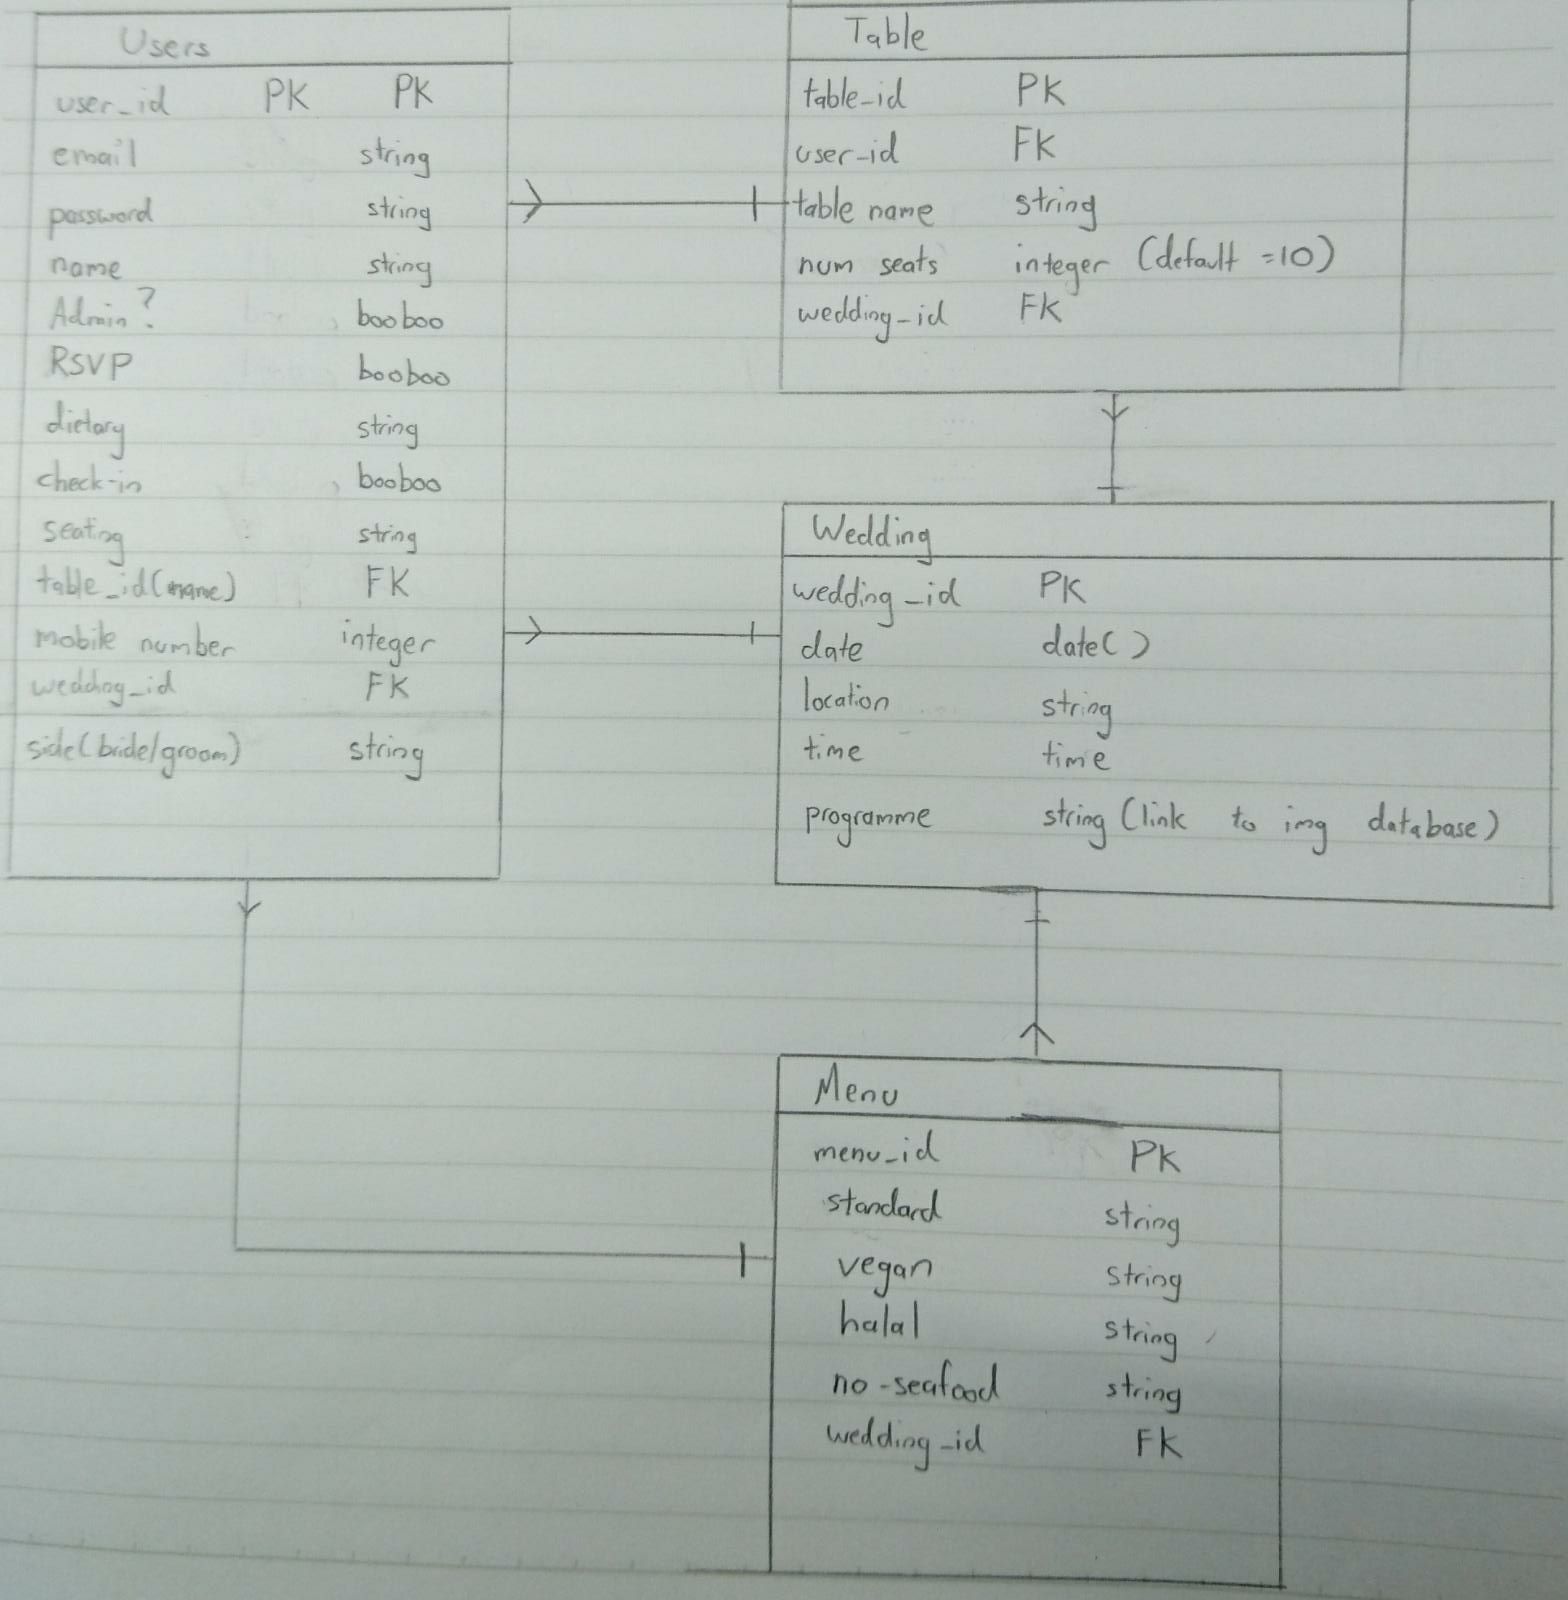 Users
user_id PK PK
email string
password string
name string
Admin? booboo
RSVP booboo
dietary string
check-in booboo
seating string
table_id(name) FK
mobile number integer
wedding_id FK
side(bride/groom) string
Table
table_id PK
user_id FK
table name string
num seats integer (default =10)
wedding_id FK
Wedding
wedding_id PK
date date()
location string
time time
programme string (link to img database)
Menu
menu_id PK
standard string
vegan string
halal string
no-seafood string
wedding_id FK